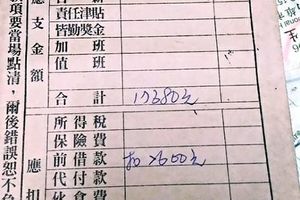 應支金額
責任津貼
皆勤獎金
加班
值班
合計 17380元
應扣
所得稅
保險費
前借款 扣 7600元
代付款
伙食費
項要當場點清,爾後錯誤恕不負